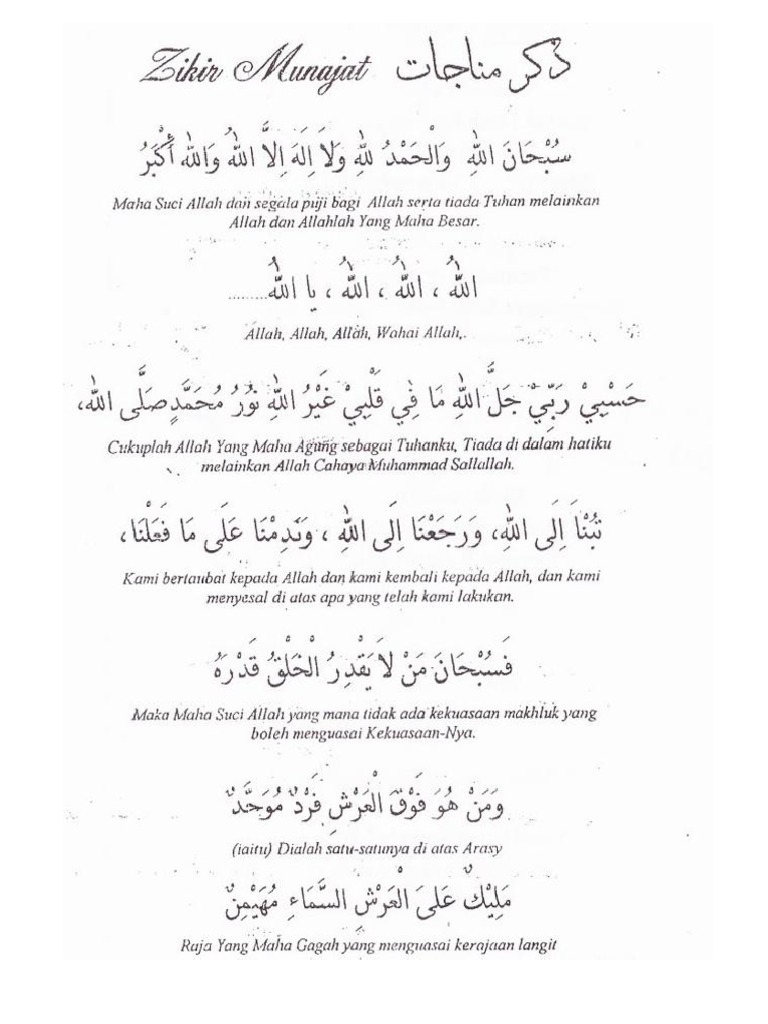 Zikir Munajat ذكر مناجات
سُبْحَانَ اللهِ وَالْحَمْدُ لِلهِ وَلاَ إِلَهَ اِلاَّ اللهُ وَاللهُ أَكْبَرُ
Maha Suci Allah dan segala puji bagi Allah serta tiada Tuhan melainkan
Allah dan Allahlah Yang Maha Besar.
اللهُ ، اللهُ ، اللهُ ، يا اللهُ.........
Allah, Allah, Allah, Wahai Allah,.
حَسْبِيْ رَبِّيْ جَلَّ اللهِ مَا فِي قَلْبِيْ غَيْرُ اللهِ نُوْرُ مُحَمَّدٍ صَلَّى الله،
Cukuplah Allah Yang Maha Agung sebagai Tuhanku, Tiada di dalam hatiku
melainkan Allah Cahaya Muhammad Sallallah.
تُبْنَا اِلَى اللهِ، وَرَجَعْنَا اِلَى اللهِ ، وَنَدِمْنَا عَلَى مَا فَعَلْنَا،
Kami bertaubat kepada Allah dan kami kembali kepada Allah, dan kami
menyesal di atas apa yang telah kami lakukan.
فَسُبْحَانَ مَنْ لاَ يَقْدِرُ الْخَلْقُ قَدْرَهُ
Maka Maha Suci Allah yang mana tidak ada kekuasaan makhluk yang
boleh menguasai Kekuasaan-Nya.
وَمَنْ هُوَ فَوْقَ الْعَرْشِ فَرْدٌ مُوَحَّدٌ
(iaitu) Dialah satu-satunya di atas Arasy
مَلِيْكٌ عَلىَ الْعَرْشِ السَّمَاءِ مُهَيْمِنٌ
Raja Yang Maha Gagah yang menguasai kerajaan langit